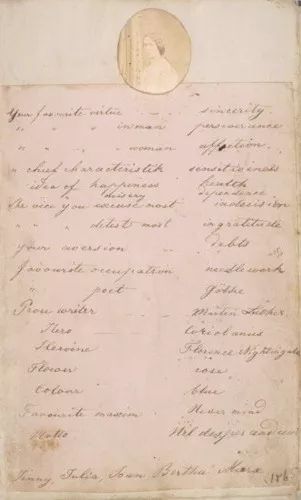 Your favourite virtue .. .. sincerity.
" " " in man .. perseverance
" " " woman .. affection.
" chief characteristik sensitiveness
idea of happeness health
" " misery dependence
The vice you excuse most indecision
" " " detest most ingratitude
your aversion .. .. debts
favourite occupation .. needlework
" poet .. Göthe
Prose writer .. Martin Luther
Hero Coriolanus
Heroine Florence Nightingale
Flower rose
Colour blue
Favourite maxim .. Never mind
Motto Nil desperandum
Jenny, Julia, Joan Bertha Marx